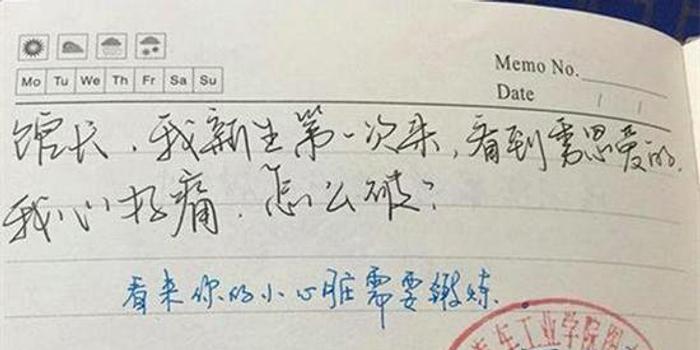 Memo No.
Mo Tu We Th Fr Sa Su
Date / /
馆长，我新生第一次来，看到秀恩爱的，
我心好痛，怎么破？
看来你的小心脏需要锻炼。
汽车工业学院图